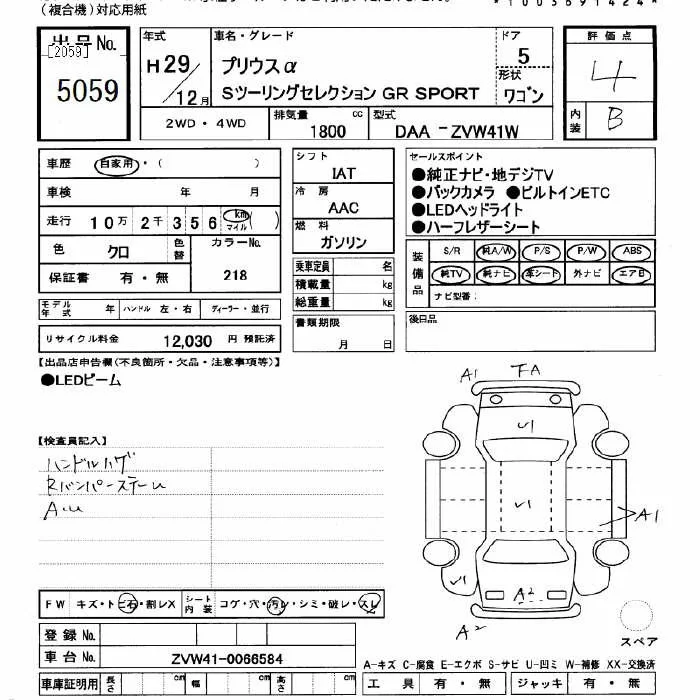 (複合機)対応用紙
*1003691424*
出品No.
[2059]
5059
年式
H29/12月
車名・グレード
プリウスα
Sツーリングセレクション GR SPORT
ドア
5
形状
ワゴン
評価点
4
内装
B
2WD・4WD
排気量
1800 cc
型式
DAA -ZVW41W
車歴
自家用・( )
車検 年 月
走行 10万 2千 3 5 6 km マイル ( )
色
クロ
色替
カラーNo.
218
保証書 有・無
モデル年式 年 ハンドル 左・右 ディーラー・並行
リサイクル料金 12,030 円 預託済
シフト
IAT
冷房
AAC
燃料
ガソリン
乗車定員 名
積載量 kg
総重量 kg
書類期限
月 日
セールスポイント
●純正ナビ・地デジTV
●バックカメラ ●ビルトインETC
●LEDヘッドライト
●ハーフレザーシート
装備品
S/R 純A/W P/S P/W ABS
純TV 純ナビ 革シート 外ナビ エアB
ナビ型番:
後日品
【出品店申告欄(不良箇所・欠品・注意事項等)】
●LEDビーム
【検査員記入】
ハンドルハゲ
Rバンパーステー凵
A.凵
A1 FA
U1
U1
A1
U1
A2
A2
スペア
FW キズ・トビ石・割レX シート内装 コゲ・穴・汚レ・シミ・破レ・スレ
登録No.
車台No. ZVW41-0066584
車庫証明用 長さ cm 幅 cm 高さ cm
A-キズ C-腐食 E-エクボ S-サビ U-凹ミ W-補修 XX-交換済
工具 有・無 ジャッキ 有・無